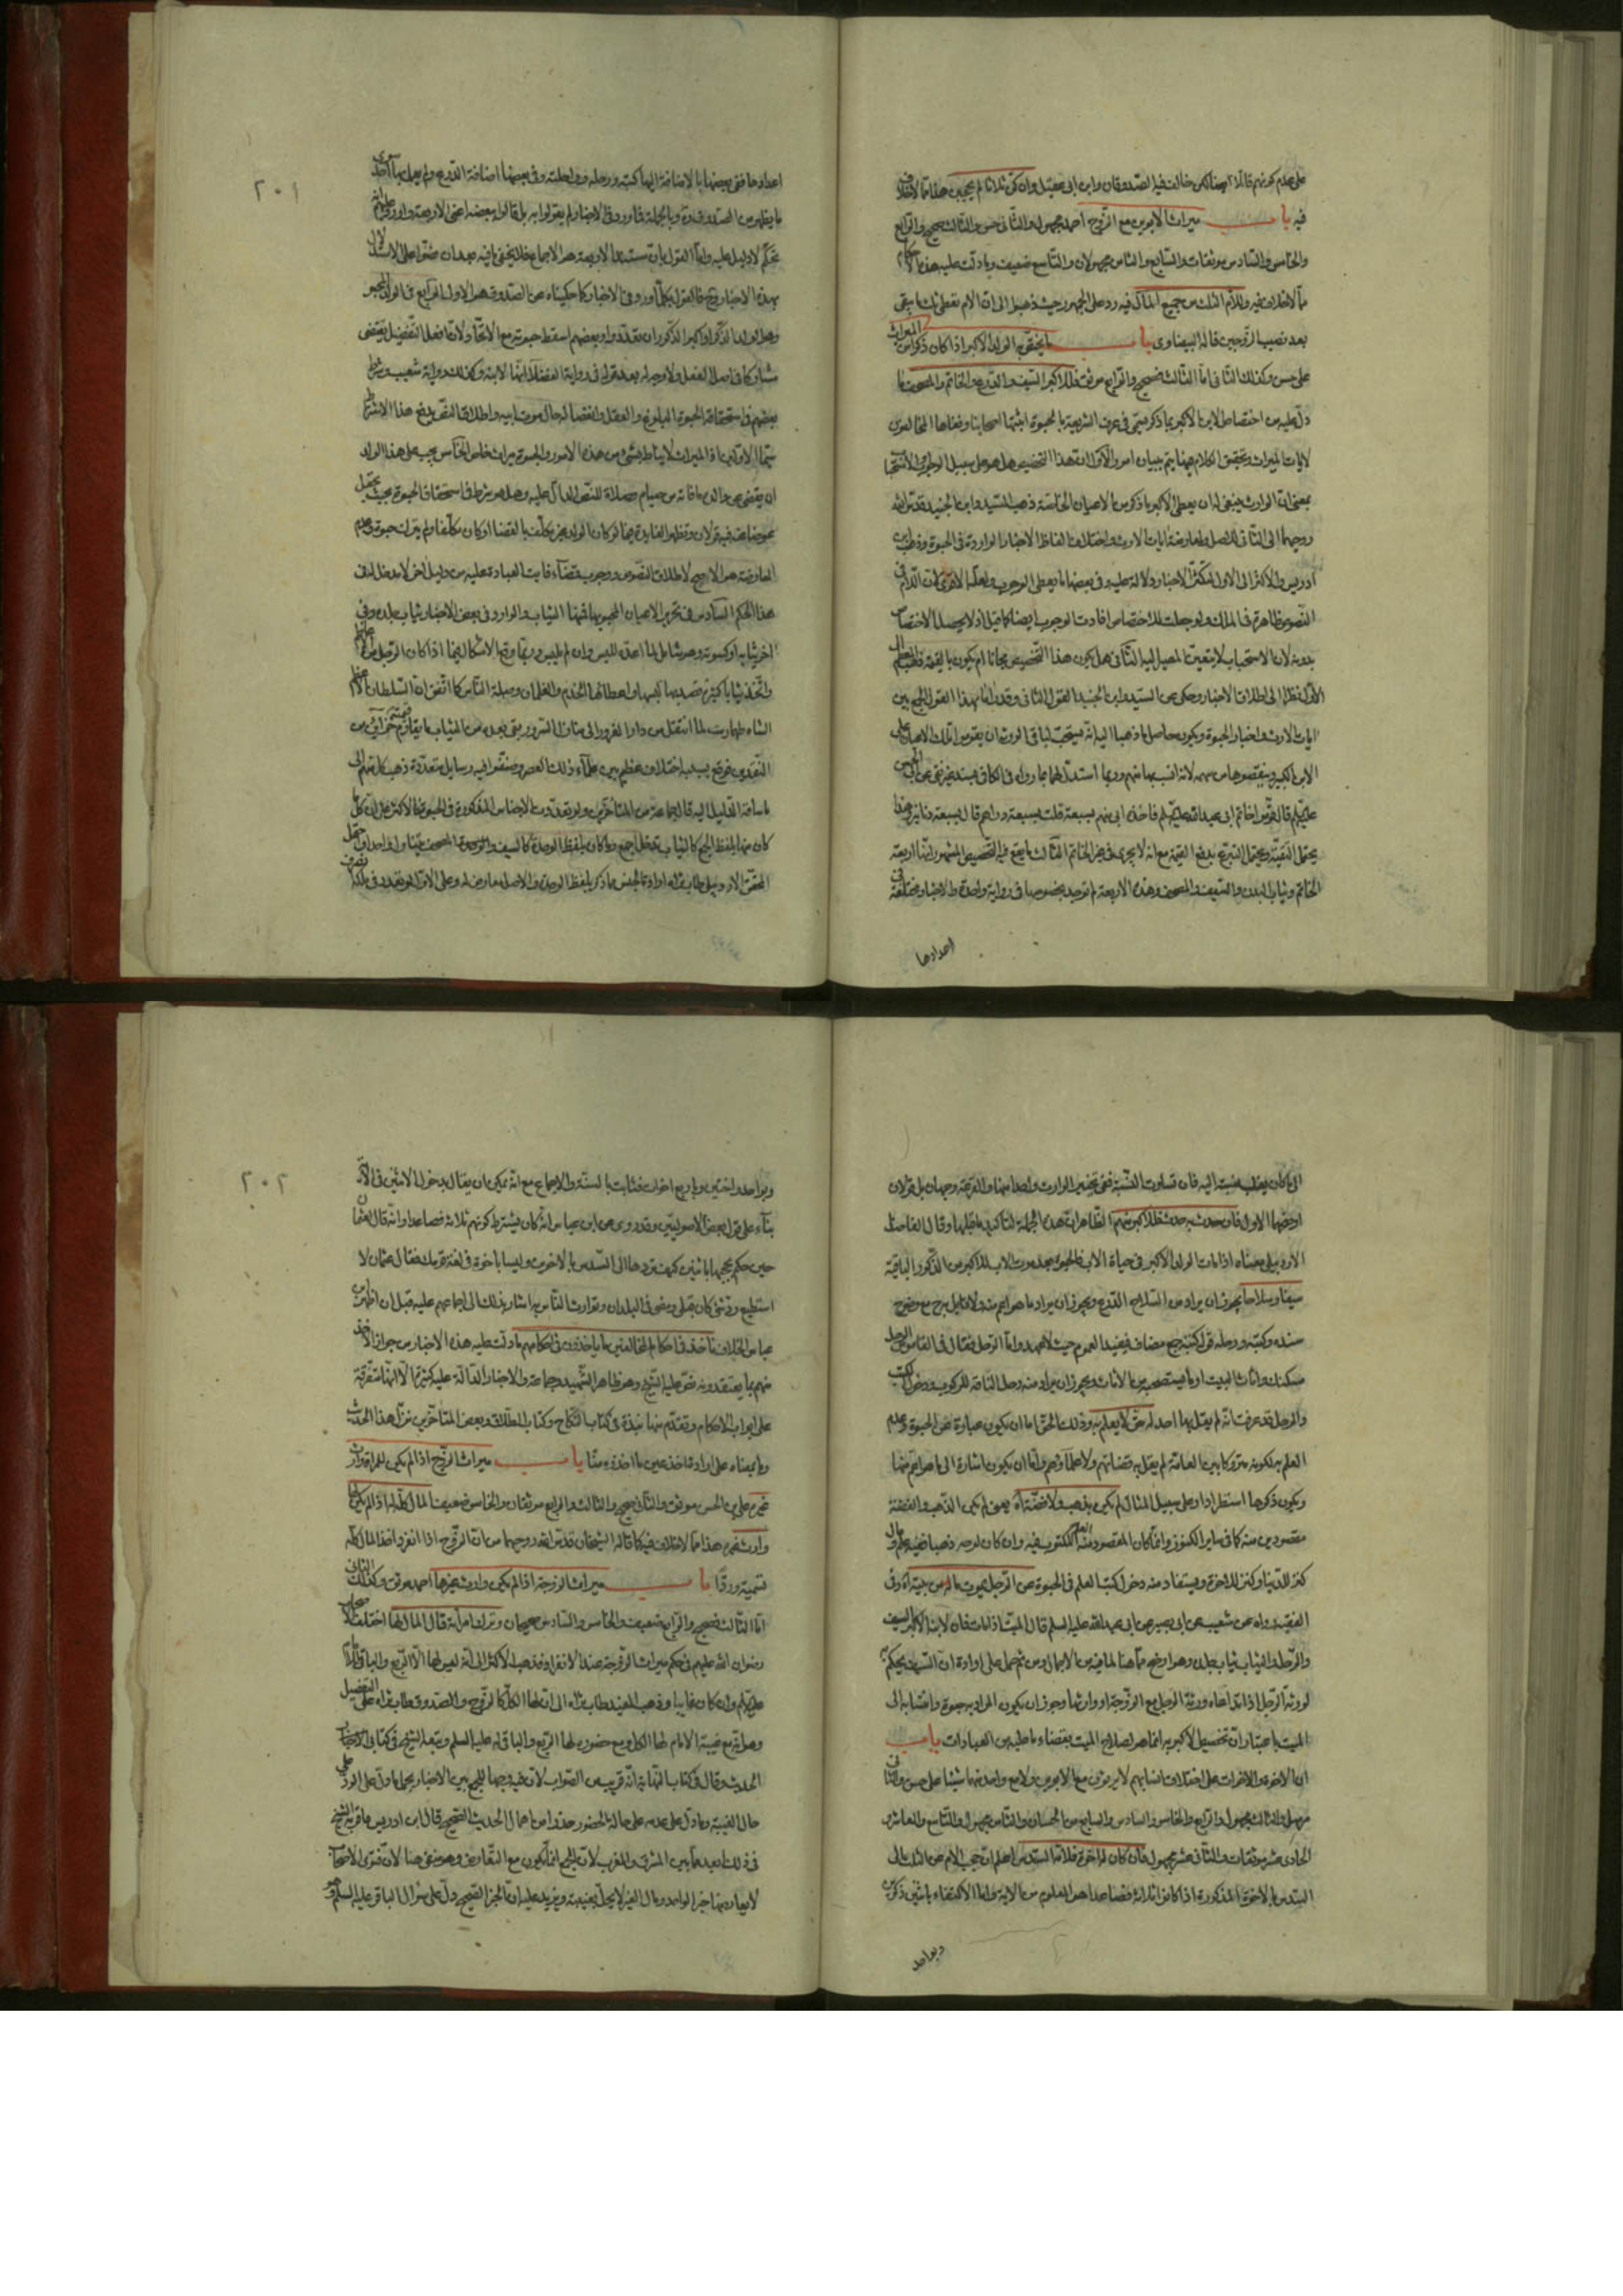 على عدم كونهم قالا ايضا لكن خالف فيه الصدوقان وابن ابى عقيل وان كن ثلاثا لم يحجبن هذا مما لا خلاف
فيه باب ميراث الابوين مع الزوج احمد مجهول والثانى حسن والثالث صحيح والرابع
والخامس والسادس موثقات والسابع والثامن مجهولان والتاسع ضعيف وما دلت عليه هذه الاحكام
مما لا خلاف فيه وللأم الثلث من جميع المال فيه رد على الجمهور حيث ذهبوا الى ان الام تعطى ثلث ما بقى
بعد نصيب الزوجين قاله البيضاوى باب ما يختص به الولد الاكبر اذا كان ذكرا من الميراث
على حسن وكذلك الثانى اما الثالث فصحيح والرابع موثق فللاكبر السيف والدرع والخاتم والمصحف ما
دل عليه من اختصاص الابن الاكبر بما ذكر يسمى فى عرف الشريعة بالحبوة اثبتها اصحابنا ونفاها المخالفون
لايات الميراث وتحقيق الكلام هنا يتم ببيان امور الاول ان هذا التخصيص هل هو على سبيل الوجوب او الاستحباب
بمعنى ان الوارث ينبغى له ان يعطى الاكبر ما ذكر من الاعيان الخاصة ذهب السيد وابن الجنيد قدس الله
روحيهما الى الثانى للاصل ولمعارضة ايات الارث واختلاف الفاظ الاخبار الواردة فى الحبوة وذهب ابن
ادريس والاكثر الى الاول لتكثر الاخبار ودلالة عليه وفى بعضها ما يعطى الوجوب ولعله الاقوى لان اللام فى
النصوص ظاهرة فى الملك ولو جعلت للاختصاص افادت الوجوب ايضا كما قيل اذ لا يحصل الاختصاص
بدونه لان الاستحباب لا يتعين المصير اليه الثانى هل يكون هذا التخصيص مجانا ام يكون بالقيمة ذهب
الاول نظرا الى اطلاق الاخبار وحكى عن السيد وابن الجنيد القول الثانى وقصد اتمام هذا القول الجمع بين
ايات الارث واخبار الحبوة ويكون حاصل ما ذهبا اليه انه يستحب لباقى الورثة ان يقوموا تلك الاعيان على
الابن الكبير وينقصوها من سهمه لانه انسب بها منهم وربما استدل لهما بما رواه فى الكافى بسند
عليه السلام قال قوم خاتم ابى عبد الله عليه السلام فاخذه ابى منهم بسبعة قلت بسبعة دراهم قال بسبعة دنانير وهذا
يحتمل التقية ويحتمل التبرع بدفع القيمة مع انه لا يجرى فى غير الخاتم الثالث ما يقع فيه التخصيص المشهور انها اربعة
الخاتم وثياب البدن والسيف والمصحف وهذه الاربعة لم توجد بخصوصها فى رواية واحدة والاخبار مختلفة فى
اعدادها
٢٠١
اعدادها ففى بعضها بالاضافة اليها كتبه ورحله وراحلته وفى بعضها اضافة الدرع ولم يعمل بها احد سوى
ما يظهر من الصدوق وبالجملة فما ورد فى الاخبار لم يقولوا به بل قالوا ببعضه اعنى الاربعة
تحكم لا دليل عليه واما القول بان مستند الاربعة هو الاجماع فلا يخفى ما فيه بعد ان
بهذه الاخبار فالقول بكلما ورد فى الاخبار كما حكيناه عن الصدوق هو الاولى الرابع فى الولد المحبو
وهو الولد الذكر او اكبر الذكور ان تعددوا وبعضهم اسقط حبوته مع الاتحاد لان افعل التفضيل يقتضى
مشاركا فى اصل الفعل ولا وجه له بعد قوله فى رواية الفضلاء انها لابنه وكذلك رواية شعيب وشرط
بعضهم فى استحقاقه الحبوة البلوغ والعقل وانفصاله حال موت ابيه واطلاق النص يدفع هذا الاشتراط
سيما الاولين اذ الميراث لا يناط بشئ من هذه الامور والحبوة ميراث خاص الخامس يجب على هذا الولد
ان يقضى عن والده ما فاته من صيام وصلاة للنص الدال عليه وهل هو شرط فى استحقاق الحبوة بحيث يجعل
عوضا عنه فيه قولان وتظهر الفايدة فيما لو كان الولد غير مكلف بالقضا او كان مكلفا ولم يترك حبوة وعدم
المعاوضة هو الارجح لاطلاق النصوص ووجوب قضاء فايت العبادة عليه من دليل اخر لا مدخل له فى
هذا الحكم السادس فى تحرير الاعيان المحبو بها فمنها الثياب والوارد فى بعض الاخبار ثياب جلده وفى
اخر ثيابه او كسوته وهو شامل لما اعده للبس وان لم يلبس وربما وقع الاشكال فيما اذا كان الرجل من
واتخذ ثيابا كثيرة قصد بها لبسها واعطائها الخدم والغلمان وصلة الناس كما اتفق ان السلطان الاعظم
الشاه طهماسب لما انتقل من دار الغرور الى منازل السرور بقى بعده من الثياب ما يقاوم قيمته خزائن من
النقدين فوقع بسببه اختلاف عظيم بين علماء ذلك العصر وصنفوا فيه رسايل متعددة ذهب كل منهم الى
ما ساقه الدليل اليه قال جماعة من المتاخرين ولو تعددت الاجناس المذكورة فى الحبوة فالاكثر على ان كل ما
كان منها بلفظ الجمع كالثياب تدخل اجمع وما كان بلفظ الوحدة كالسيف والمصحف يتناول واحدا
المحقق الاردبيلى طاب ثراه ارادة الجنس مما ذكر بلفظ الوحدة والاصل معارض له وعلى الاول لو تعدد فى ملكه
الى ما كان يغلب نسبته اليه فان تساوت النسبة ففى تخيير الوارث واحدا منها والقرعة وجهان بل قولان
اوجههما الاول فان حدث به حدث فللاكبر منهم الظاهر ان هذه الجملة لتاكيد ما قبلها وقال الفاضل
الاردبيلى معناه اذا مات الولد الاكبر فى حياة الاب فالحبوة بعد موت الاب للاكبر من الذكور الباقية
سيفا وسلاحا يجوز ان يراد من السلاح الدرع ويجوز ان يراد ما هو اعم منه
سنده وكتبه ورحله قوله كتبه جمع مضاف فيفيد العموم حيث لا عهد واما الرحل فقال فى القاموس الرحل
مسكنك واثاث البيت او ما يستصحبه من الاثاث ويجوز ان يراد منه رحل الناقة للركوب ودخول الكتب
والرحل قد عرفت انه لم يقل بها احد له حق لا يعلم به وذلك الحق اما ان يكون عبارة عن الحبوة وعدم
العلم به لكونه متروكا بين العامة لم يقل به قضاتهم ولا علماؤهم واما ان يكون اشارة الى ما هو اعم منها
ويكون ذكرها استطرادا وعلى سبيل المثال لم يكن بذهب ولا فضة اه يعنى لم يكن الذهب والفضة
مقصودين منه كما فى ساير الكنوز وانما كان المقصود منه العلم المكتوب فيه وان كان لوحه ذهبا
كنز للدنيا وكنز للاخرة ويستفاد منه دخول كتب العلم فى الحبوة عن الرجل يموت ماله من بيته اه وفى
الفقيه رواه عن شعيب عن ابى بصير عن ابى عبد الله عليه السلام قال الميت اذا مات فان لابنه الاكبر السيف
والرحل والثياب ثياب جلده وهو اوضح مما هنا لما فيه من الاجمال ومن ثم حمل على ارادة ان السيف يحكم به
لورثة الرجل اذا تداعاه ورثة الرجل مع الزوجة او وارثها وجوز ان يكون المراد به حبوة وانتسابه الى
الميت باعتبار ان تحصيل الاكبر به انما هو لصلاح الميت بقضاء ما طلبه من العبادات باب
ان الاخوة والاخوات على اختلاف انسابهم لا يرثون مع الابوين ولا مع واحد منهما شيئا على حسن والثانى
مرسل والثالث مجهول والرابع والخامس والسادس والسابع من الحسان والثامن مجهول والتاسع والعاشر و
الحادى عشر موثقات والثانى عشر مجهول فان كان له اخوة فلامه السدس اعلم ان حجب الام عن الثلث الى
السدس بالاخوة المذكورة اذا كانوا ثلاثة فصاعدا هو المعلوم من الاية واما الاكتفاء باثنين ذكرين
وبواحد
٢٠٢
وبواحد واختين وباربع اخوات فثابت بالسنة والاجماع مع انه يمكن ان يقال بدخول الاثنين فى الاية
بناء على قول بعض الاصوليين وقد روى عن ابن عباس انه كان يشترط كونهم ثلاثة فصاعدا وانه قال لعثمان
حين حكم بحجبها باثنين كيف تردها الى السدس بالاخوين وليسا باخوة فى لغة قومك فقال عثمان لا
استطيع رد شئ كان قبلى ومضى فى البلدان وتوارث الناس به اشار بذلك الى اجماعهم عليه قبل ان اظهر ابن
عباس الخلاف ناخذ فى احكام المخالفين ما ياخذون فى احكامهم ما دلت عليه هذه الاخبار من جواز الاخذ
منهم بما يعتقدونه نص عليه الشيخ وهو ظاهر الشهيد وجماعة والاخبار الدالة عليه كثيرة الا انها متفرقة
على ابواب الاحكام وتقدم منها نبذة فى كتاب النكاح وكتاب الطلاق وبعض المتاخرين نزل هذا الحديث
وما بمعناه على ارادة اخذ عين ما اخذوه منا باب ميراث الزوج اذا لم يكن للمراة وارث
غيره على الحسن موثق والثانى صحيح والثالث والرابع موثقان والخامس ضعيف المال كله له اذا لم يكن لها
وارث غيره هذا مما لا خلاف فيه كما قاله الشيخان قدس الله روحيهما من ان الزوج اذا انفرد اخذ المال كله
تسمية وردا باب ميراث الزوجة اذا لم يكن وارث غيرها احمد موثق وكذلك الثانى
اما الثالث فصحيح والرابع ضعيف والخامس والسادس صحيحان وترك امراته قال المال لها اختلف الاصحاب
رضوان الله عليهم فى حكم ميراث الزوجة عند الانفراد فذهب الاكثر الى انه ليس لها الا الربع والباقى للامام
عليه السلام وان كان غايبا وذهب المفيد طاب ثراه الى ان لها الكل كالزوج والصدوق طاب ثراه على التفصيل
وهو انه مع غيبة الامام لها الكل ومع حضوره لها الربع والباقى له عليه السلام وتبعه الشيخ فى كتابى الاخبار
الحديث وقال فى كتاب النهاية انه قريب من الصواب لان فيه وجها للجمع بين الاخبار بحمل ما دل على الرد على
حال الغيبة وما دل على عدمه على حالة الحضور حذرا من اهمال الحديث الصحيح قال ابن ادريس ما قربه الشيخ
فى ذلك ابعد مما بين المشرق والمغرب لان الجمع انما يكون مع التعارض وهو منفى هنا لان فتوى الاصحاب
لا يعارضها خبر الواحد ومال الغير لا يحل بغيبته ويزيد عليه ان الخبر الصحيح دل على سؤال الباقر عليه السلام